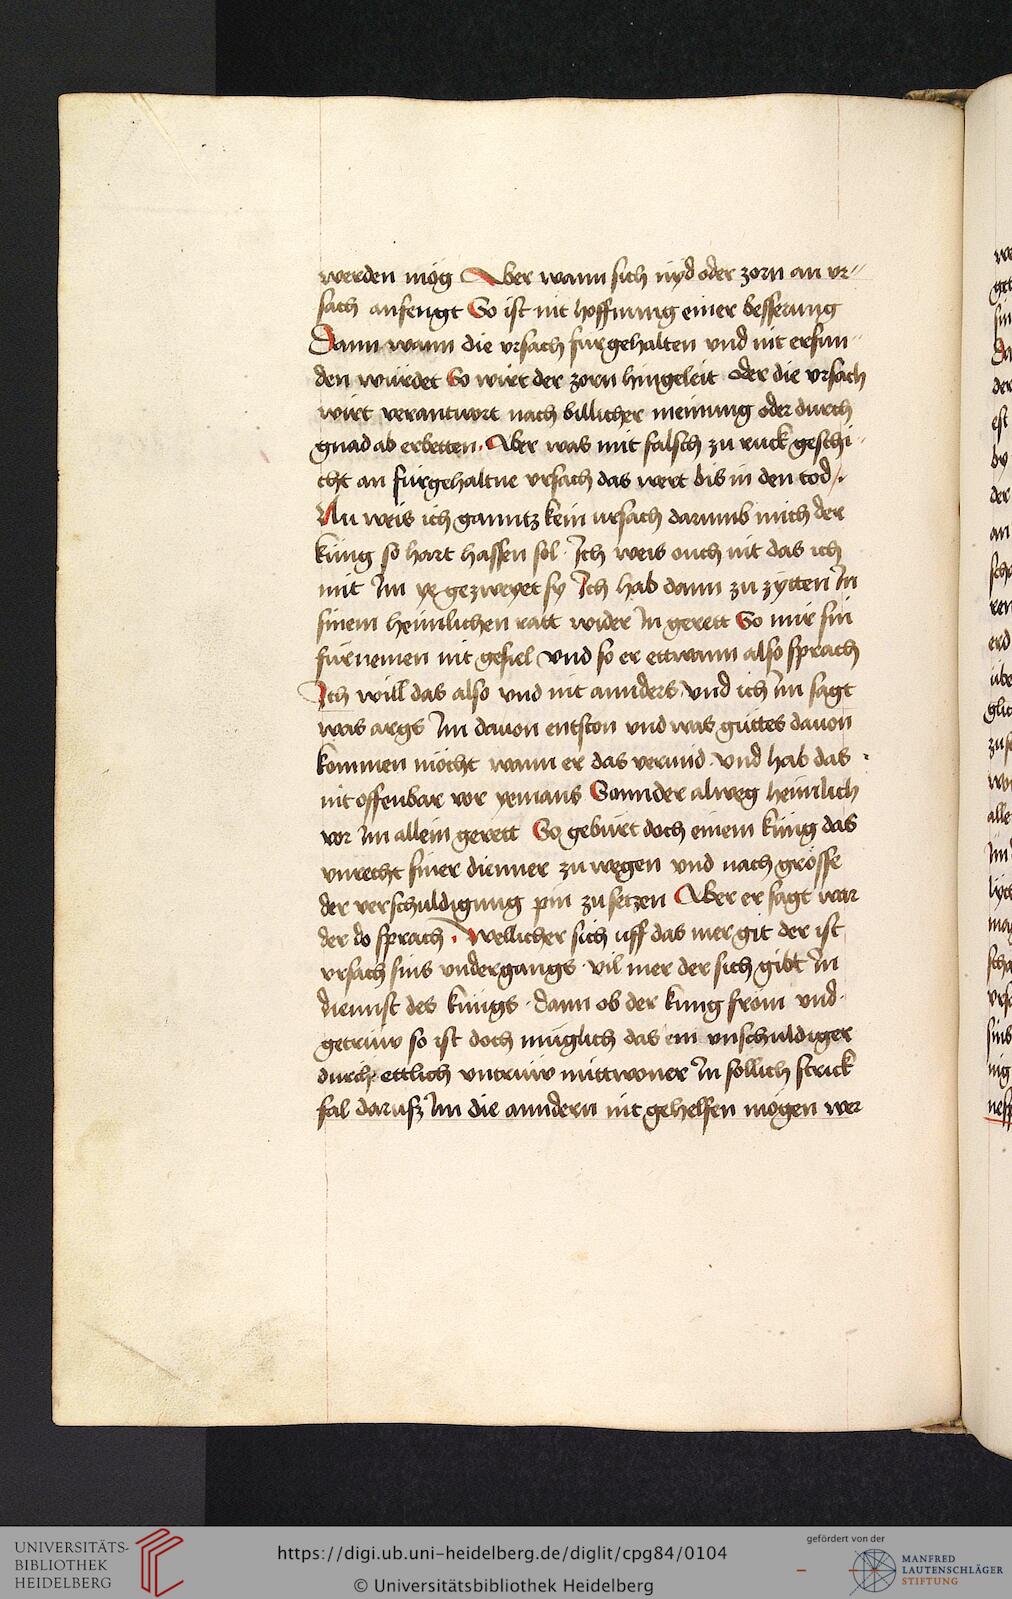 werden mög Aber wann sich nyd oder zorn an vr-
sach anfengt So ist nit hoffnung einer besserung
Dann wann die vrsach furgehalten vnd nit erfun-
den würdet So wirt der zorn hingeleit Oder die vrsach
wirt verantwort nach billicher meinung oder durch
gnad ab erbetten. Aber was mit falsch zu ruck geschi-
cht an fürgehaltne vrsach das wert bis in den tod.
Nu weis ich ganntz kein ursach darumb mich der
küng so hart hassen sol. Ich weis ouch nit das ich
mit Im ye gezweyet sy Ich hab dann zu zytten In
sinem heimlichen ratt wider In gerett So mir sin
fürnemen nit gefiel Vnd so er ettwann also sprach
Ich will das also vnd nit annders. Vnd ich Im sagt
was args Im dauon entston vnd was guttes dauon
kommen möcht wann er das vermid. Vnd hab das
nit offenbar vor yemans Sonnder alweg heimlich
vor Im allein gerett So gebürt doch einem küng das
vnrecht siner dienner zu wegen vnd nach grösse
der verschuldigung pin zu setzen Aber er sagt war
der do sprach. Wellicher sich uff das mer git der ist
vrsach sins vndergangs. vil mer der sich gibt In
diennst des küngs. dann ob der kung from vnd
getrüw so ist doch müglich das ein vnschuldiger
durch ettlich vntrüw mittwoner In sollich strick
fal darusz Im die anndern nit gehelfen mögen wer
UNIVERSITÄTS-
BIBLIOTHEK
HEIDELBERG
https://digi.ub.uni-heidelberg.de/diglit/cpg84/0104
© Universitätsbibliothek Heidelberg
gefördert von der
MANFRED
LAUTENSCHLÄGER
STIFTUNG